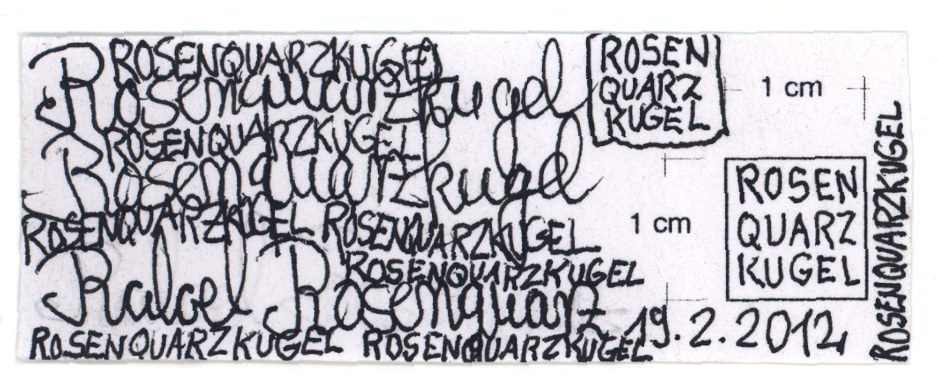 ROSENQUARZKUGEL
Rosenquarzkugel
ROSENQUARZKUGEL
Rosenquarzkugel
ROSENQUARZKUGEL ROSENQUARZKUGEL
ROSENQUARZKUGEL
Rosenquarz
ROSENQUARZKUGEL ROSENQUARZKUGEL
ROSEN
QUARZ
KUGEL
1 cm
1 cm
ROSEN
QUARZ
KUGEL
19.2.2012
ROSENQUARZKUGEL